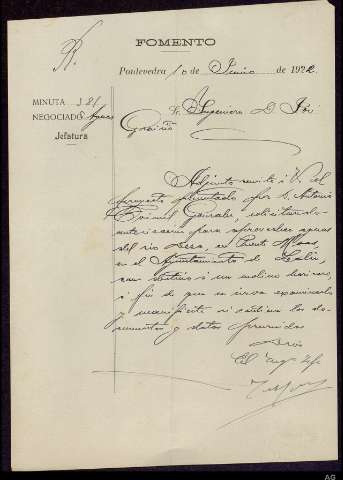 R.
FOMENTO
Pontevedra 10 de Junio de 1922.
MINUTA 381
NEGOCIADO Aguas
Jefatura
Sr. Ingeniero D.
Adjunto remito á V. el
proyecto presentado por D. Antonio
solicitando
autorización para aprovechar aguas
del río Deza, en
en el Ayuntamiento de Lalín,
con destino á un molino harinero,
á fin de que se sirva examinarlo
y manifieste si están los do-
cumentos y datos
Dios
El Ing. Jefe
AG